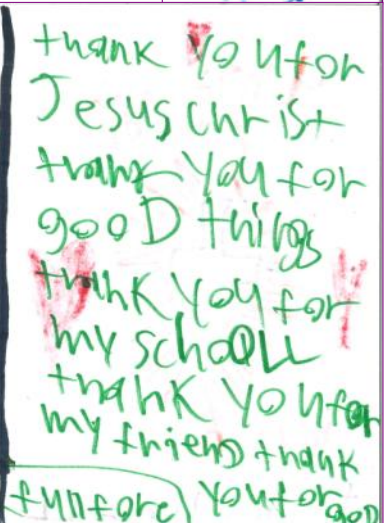 thank You for
Jesus christ
thank you for
gooD things
thank you for
my schoOLL
thank you for
my friend thank
you for gooD